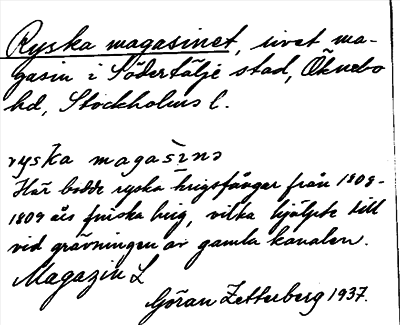 Ryska magasinet, rivet ma-
gasin i Södertälje stad, Öknebo
hd, Stockholms l.
ryska magasinə
Här bodde ryska krigsfångar från 1808-
1809 års finska krig, vilka hjälpte till
vid grävningen av gamla kanalen.
Magazin L
Göran Zetterberg 1937.